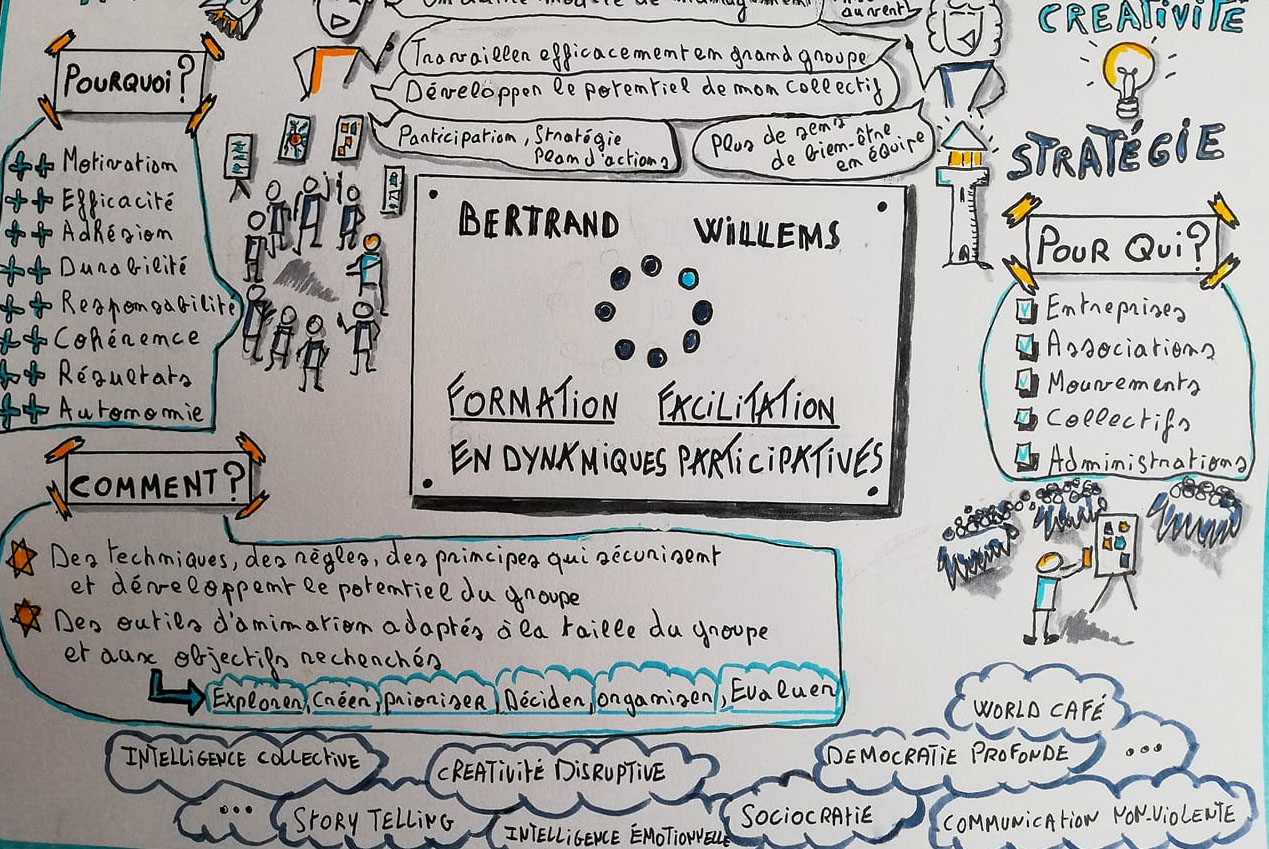 modèle de management
CREATIVITÉ
Travailler efficacement en grand groupe
Développer le potentiel de mon collectif
Participation, Stratégie
Plan d'actions
Plus de sens
de bien-être
en équipe
STRATÉGIE
POURQUOI?
++ Motivation
++ Efficacité
++ Adhésion
++ Durabilité
++ Responsabilité
++ Cohérence
++ Résultats
++ Autonomie
BERTRAND WILLEMS
FORMATION FACILITATION
EN DYNAMIQUES PARTICIPATIVES
POUR QUI?
Entreprises
Associations
Mouvements
Collectifs
Administrations
COMMENT?
Des techniques, des règles, des principes qui sécurisent
et développent le potentiel du groupe
Des outils d'animation adaptés à la taille du groupe
et aux objectifs recherchés
Explorer, Créer, prioriser, Décider, organiser, Evaluer
WORLD CAFÉ
INTELLIGENCE COLLECTIVE
CREATIVITÉ DISRUPTIVE
DEMOCRATIE PROFONDE
...
...
STORY TELLING
INTELLIGENCE ÉMOTIONNELLE
SOCIOCRATIE
COMMUNICATION NON-VIOLENTE